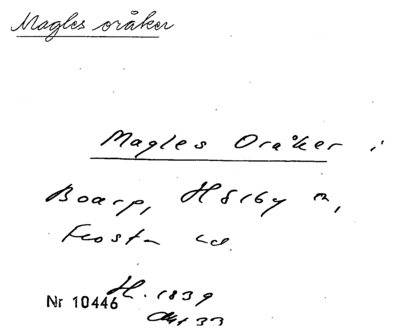 Magles oråker
Magles Oråker i
Boarp, Hörby sn,
Frosta hd
H. 1839
Nr 10446